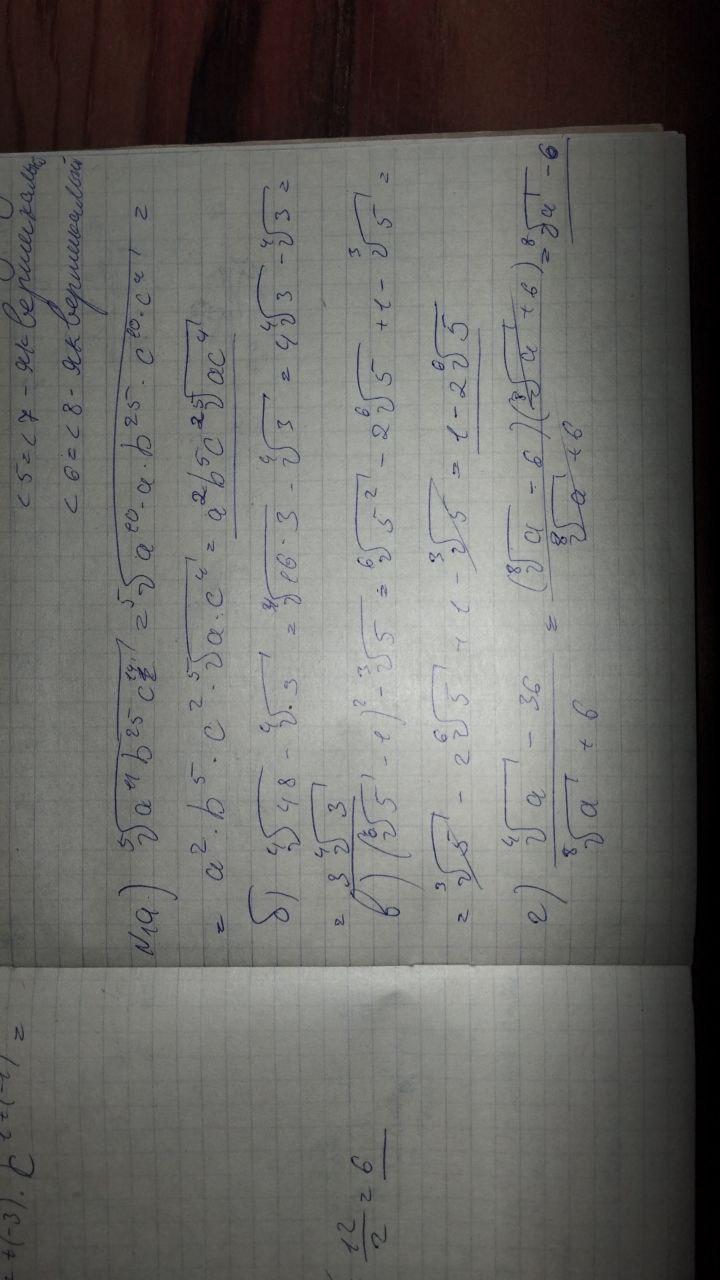 <5=<7 - як вертикальні
<6=<8 - як вертикальні
№1 а) ⁵√(a¹¹b²⁵c¹⁴) = ⁵√(a¹⁰·a·b²⁵·c¹⁰·c⁴) =
= a²·b⁵·c²·⁵√(a·c⁴) = a²b⁵c² ⁵√(ac⁴)
б) ⁴√48 - ⁴√3 = ⁴√(16·3) - ⁴√3 = 4⁴√3 - ⁴√3 =
= 3⁴√3
в) (⁶√5 - 1)² - ³√5 = ⁶√5² - 2⁶√5 + 1 - ³√5 =
= ³√5 - 2⁶√5 + 1 - ³√5 = 1 - 2⁶√5
г) (⁴√a - 36)/(⁸√a + 6) = (⁸√a - 6)(⁸√a + 6)/(⁸√a + 6) = ⁸√a - 6
+(-3)·
12/2 = 6